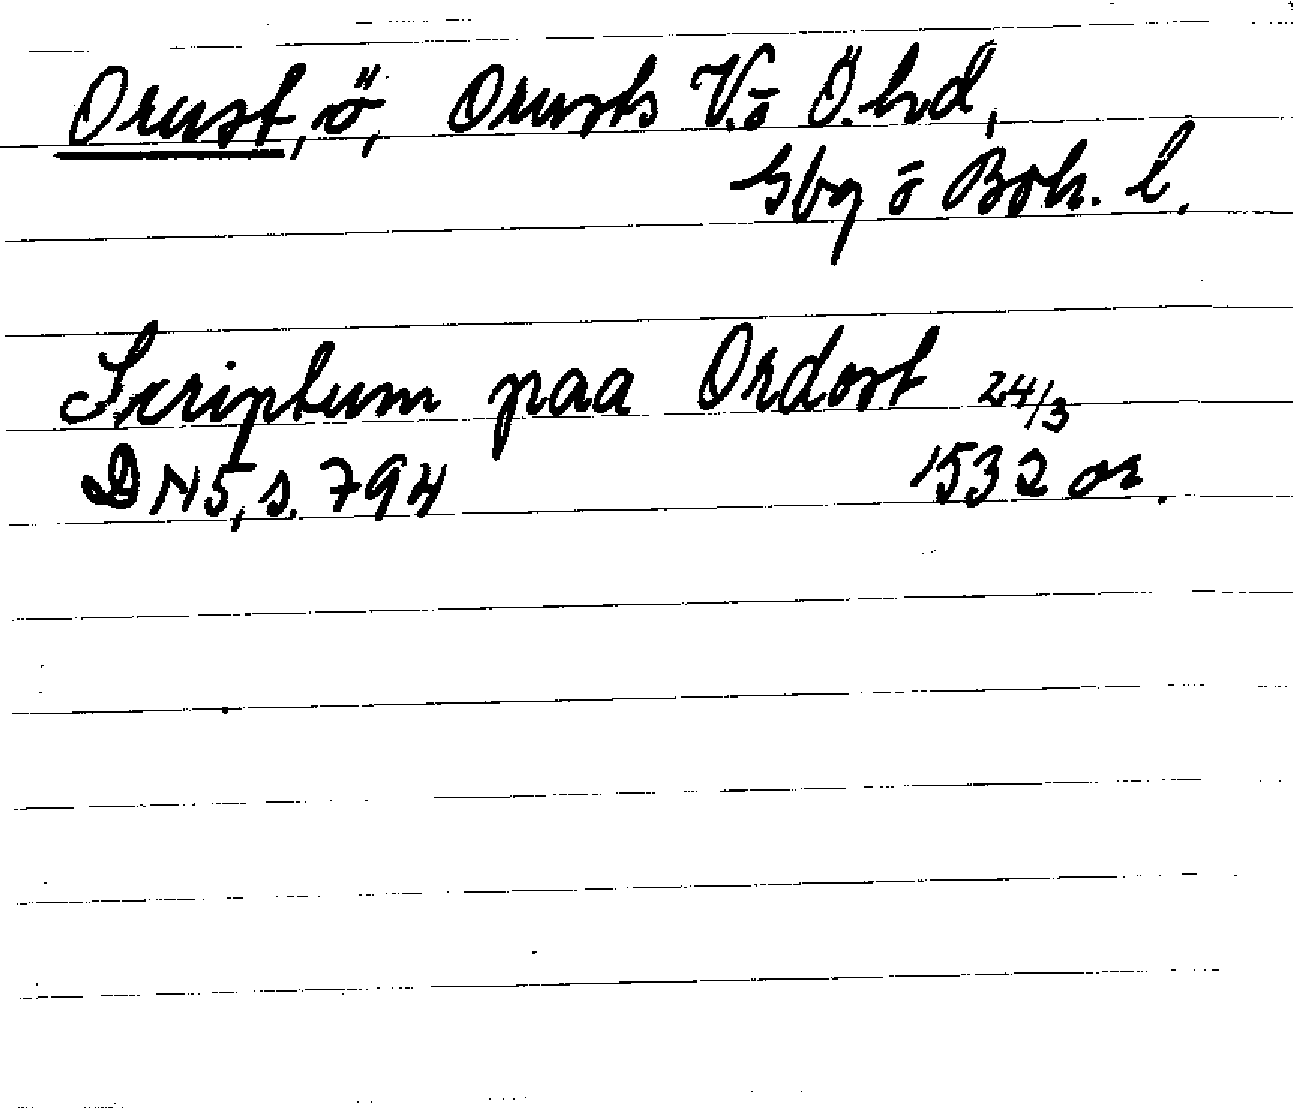 Orust, ö, Orusts V. o Ö. hd,
Gbg o Boh. l.
Scriptum paa Ordost 24/3
DN5, s. 794 1532 or.